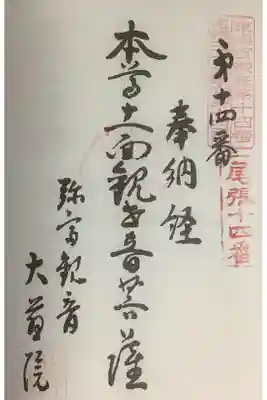 第十四番
尾張十四番
奉納経
本尊十一面観世音菩薩
弥富観音
大慈院